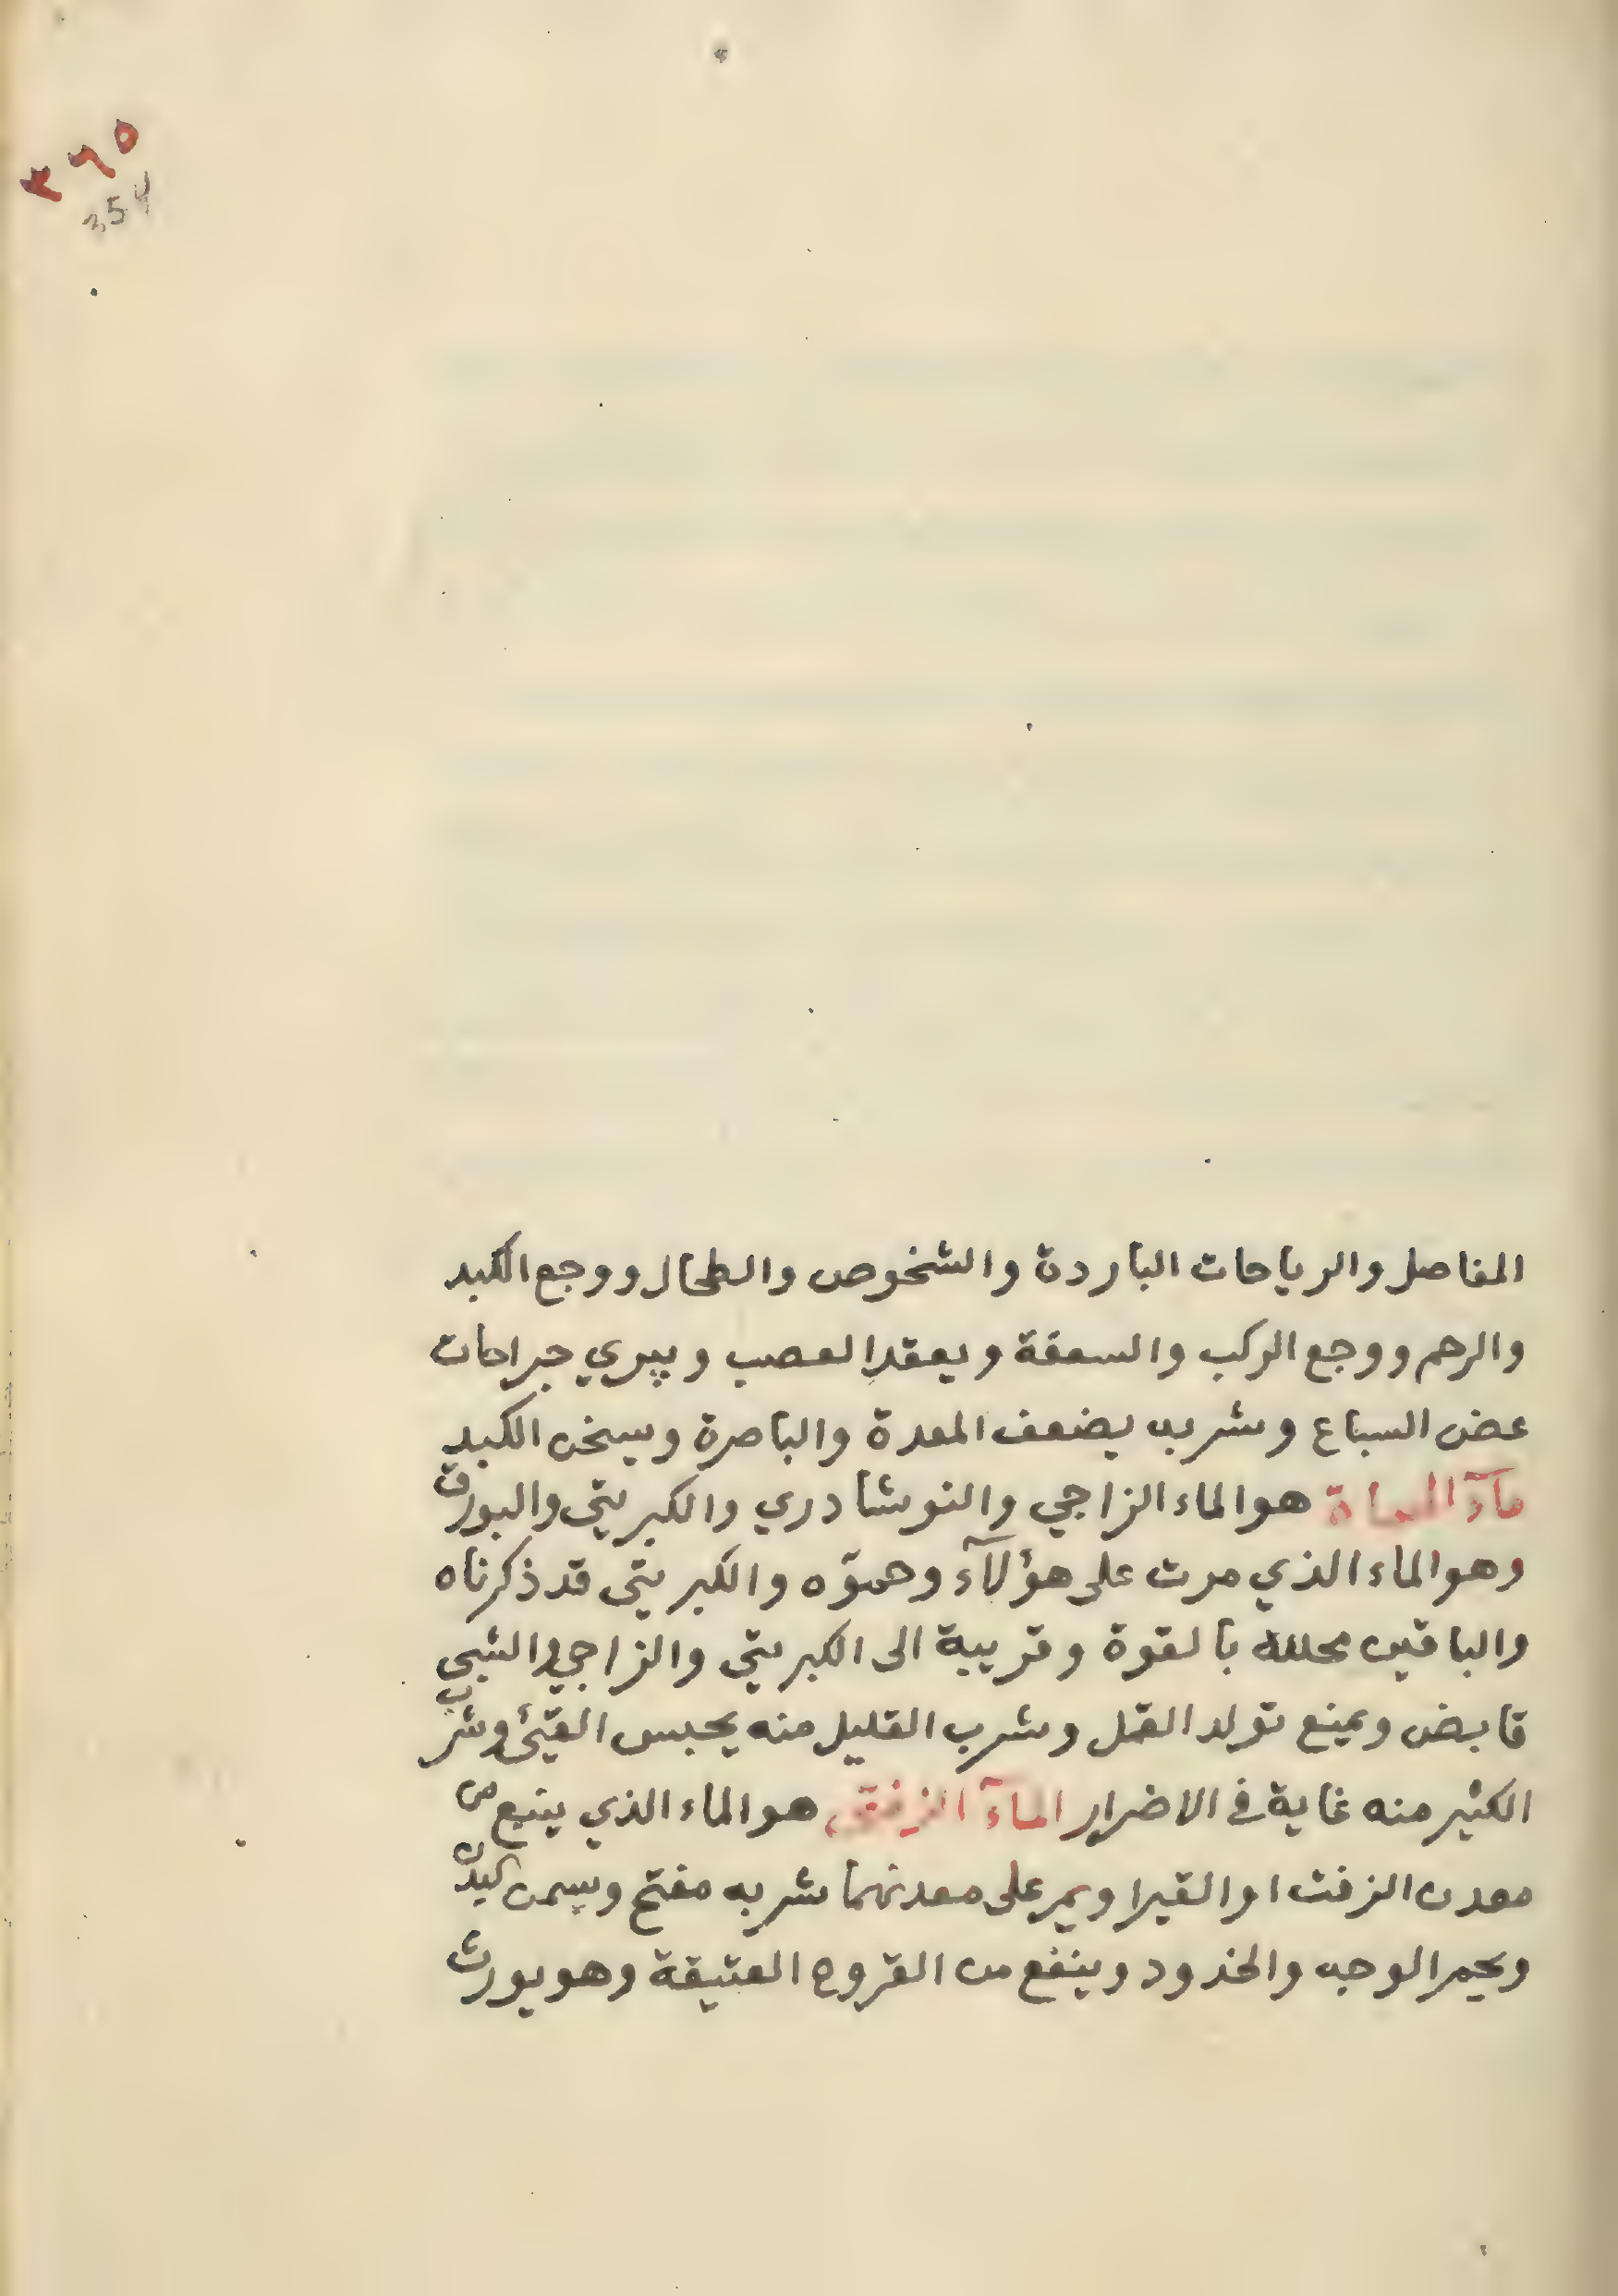 ٣٦٥
354
المفاصل والرياحات الباردة والشخوص والطحال ووجع الكبد
والرحم ووجع الركب والسعفة ويعقد العصب ويبري جراحات
عض السباع وشربه يضعف المعدة والباصرة ويسخن الكبد
مآء الحماة هو الماء الزاجي والنوشادري والكبريتي والبورق
وهو الماء الذي مرت على هؤلآء والكبريتي قد ذكرناه
والباقين محللة بالقوة وقريبة الى الكبريتي والزاجي والشبي
قابض ويمنع تولد القمل وشرب القليل منه يحبس القيئ وشرب
الكثير منه غاية في الاضرار المآء الزفتي هو الماء الذي ينبع من
معدن الزفت او القيرا ويمر على معدنهما شربه مفتح ويسمن
ويحمر الوجه والخدود وينفع من القروح العتيقة وهو يورث